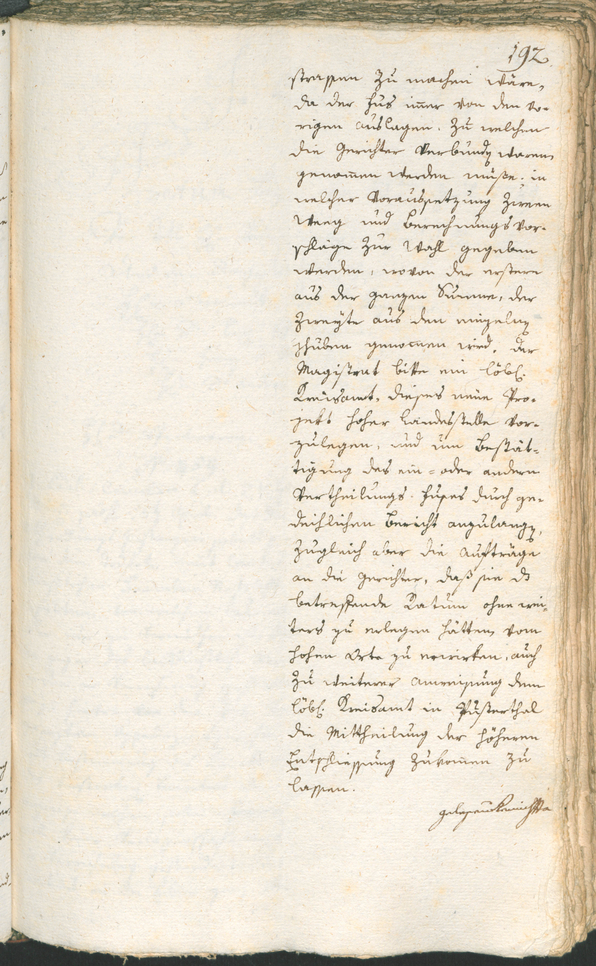 192.
strassen zu machen wäre,
da der Fus immer von den vo-
rigen auslagen, zu welchen
die Gerichter verbunden waren
genommen werden müße. in
welcher Voraussetzung zween
Weeg und Berechnungsvor-
schläge zur Wahl gegeben
werden, wovon der erstere
aus der ganzen Summe, der
zweyte aus den einzelnen
genommen wird. der
Magistrat bitte ein löbl.
Kreisamt, dieses neue Pro-
jekt hoher Landesstelle vor-
zulegen, und um Bestät-
tigung des ein- oder andern
Vertheilungs-Fuses durch ge-
deihlichen Bericht anzulangen,
zugleich aber die Aufträge
an die Gerichter, daß sie
betreffende Ratum ohne wei-
ters zu erlegen hätten, vom
hohen Orte zu erwirken, auch
zu weiterer Anweisung dem
löbl. Kreisamt in Pusterthal
die Mittheilung der höheren
Entschliessung zukommen zu
lassen.